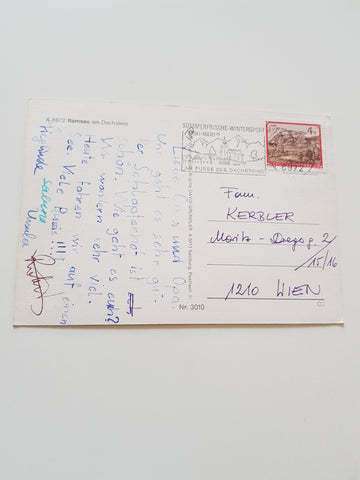 A-8972 Ramsau am Dachstein
Liebe Omi und Opa
Uns geht es sehr gut.
Der Schlepplift ist
schön. Wie geht es euch?
Wir wandern sehr viel.
Heute fahren wir auf einen
See. Viele Bussi!!!!
Sabine
Ursula
SOMMERFRISCHE-WINTERSPORT
AM FUSSE DES DACHSTEINS
4 S
8972
Fam.
KERBLER
Moritz-Dregerg. 2
/15/16
1210 WIEN
Nr. 3010